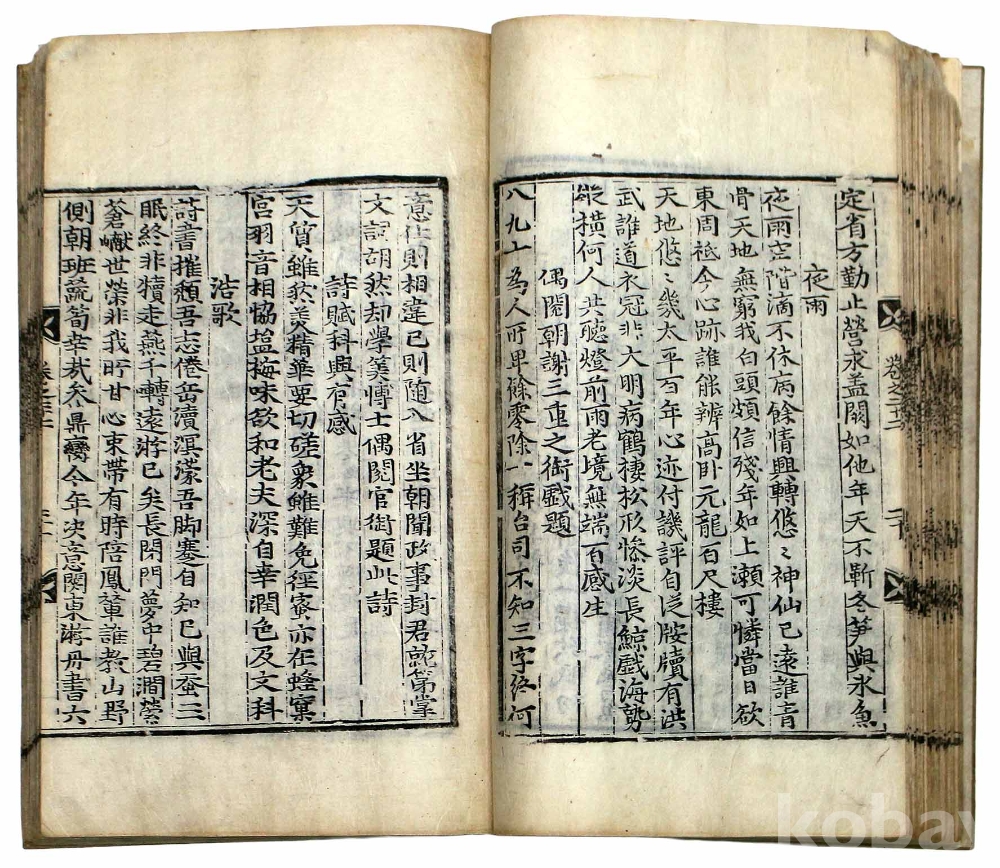 定省方勤止營求盖闕如他年天不靳冬笋與氷魚
夜雨
夜雨空階滴不休病餘情興轉悠〻神仙已遠誰音
骨天地無窮我白頭頗信殘年如上瀨可憐當日欲
東周祗今心跡誰能辨高卧元龍百尺樓
天地悠〻幾太平百年心迹付譏評自從牋牘有洪
武誰道衣冠非大明病鶴棲松形慘淡長鯨戱海勢
縱橫何人共聽燈前雨老境無端百感生
偶閱朝謝三重之銜戱題
八九十為人所卑餘零除一稱台司不知三字終何
意仕則相違已則随八省坐朝聞政事封君就第掌
文詞胡然却學筭博士偶閱官銜題此詩
詩賦科興有感
天質雖然美精華要切磋象雖難免徑蜜亦在蜂窠
宮羽音相恊塩梅味欲和老夫深自幸潤色及文科
浩歌
詩書摧頹吾志倦岳瀆溟濛吾脚蹇自知已與蚕三
眠終非犢走燕千轉遠游已矣長閉門夢中碧澗縈
蒼巘世榮非我所甘心束帶有時陪鳳輦誰敎山野
側朝班蔬筍幸裁叅鼎臠今年决意關東游丹書六
卷之
kobay